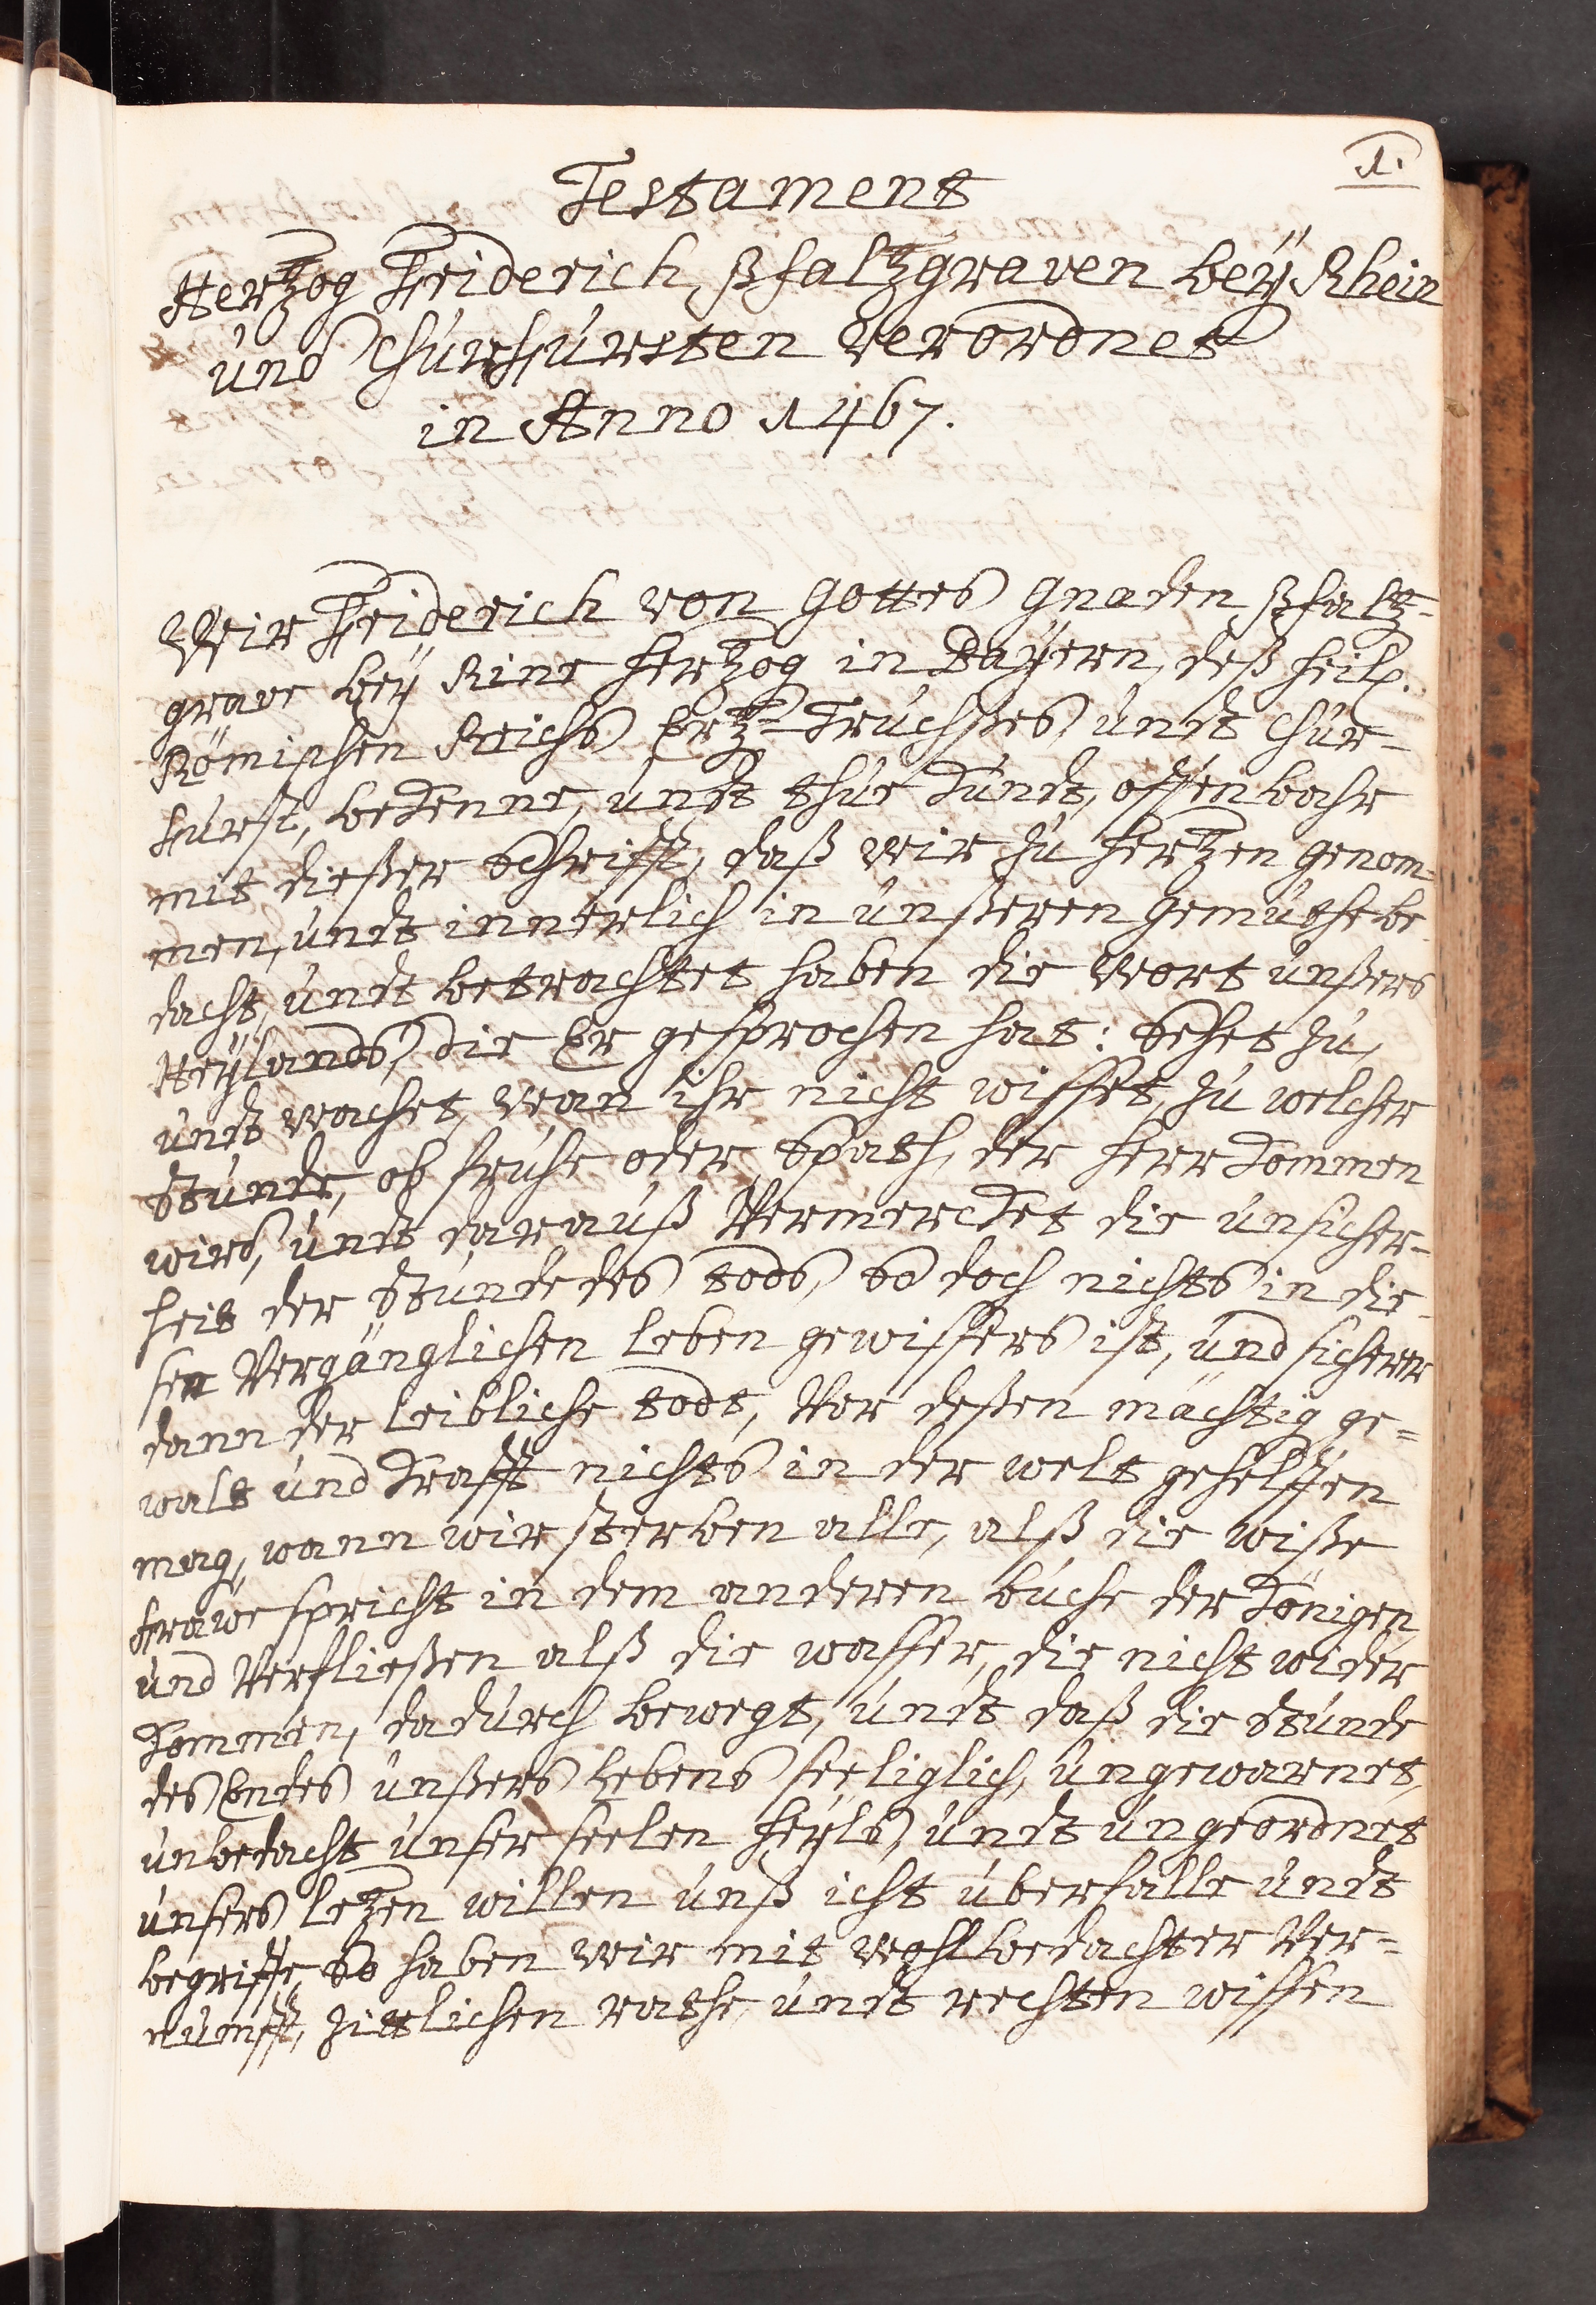 1.
Testament
Hertzog Friderich, Pfaltzgraven beÿ Rhein
und Churfürsten verordnet
in Anno 1467.
Wir Friderich von Gottes Gnaden Pfaltz-
grave beÿ Rine Hertzog in Baÿern, deß heil.
Römischen Reichs Ertz-Truchßes, undt Chur-
fürst, bekenne, undt thue kundt, offenbahr
mit dießer Schrifft, daß wir zu Hertzen genom-
men, undt innerlich in unßeren Gemüthe be-
dacht, undt betrachtet haben die Wort unßers
Heÿlands, die Er gesprochen hat: Sehet zu,
undt wachet, wan ihr nicht wisset, zu welcher
Stunde, ob fruhe oder Spath, der Herr kommen
wird, undt darauß Vermercket die unsicher-
heit der Stunde des tods, So doch nichts in die-
sen Vergänglichen leben gewissers ist, und sicherer
dann der leibliche todt, Vor deßen mächtig ge-
walt und krafft nichts in der welt gehelffen
mag, wann wir sterben alle, alß die wiße
frawe spricht in dem anderen buche der Königen,
und Verfließen alß die wasser, die nicht wider
kommen, dadurch bewegt, undt daß die Stunde
des Endes unßers Lebens seeliglich, ungewarnet,
unbedacht unser seelen heÿls, undt ungeordnet
unsers letzen willen unß icht überfalle undt
begriffe, So haben wir mit wohlbedachter Ver-
nunfft, zittlichen rathe, undt rechten wissen